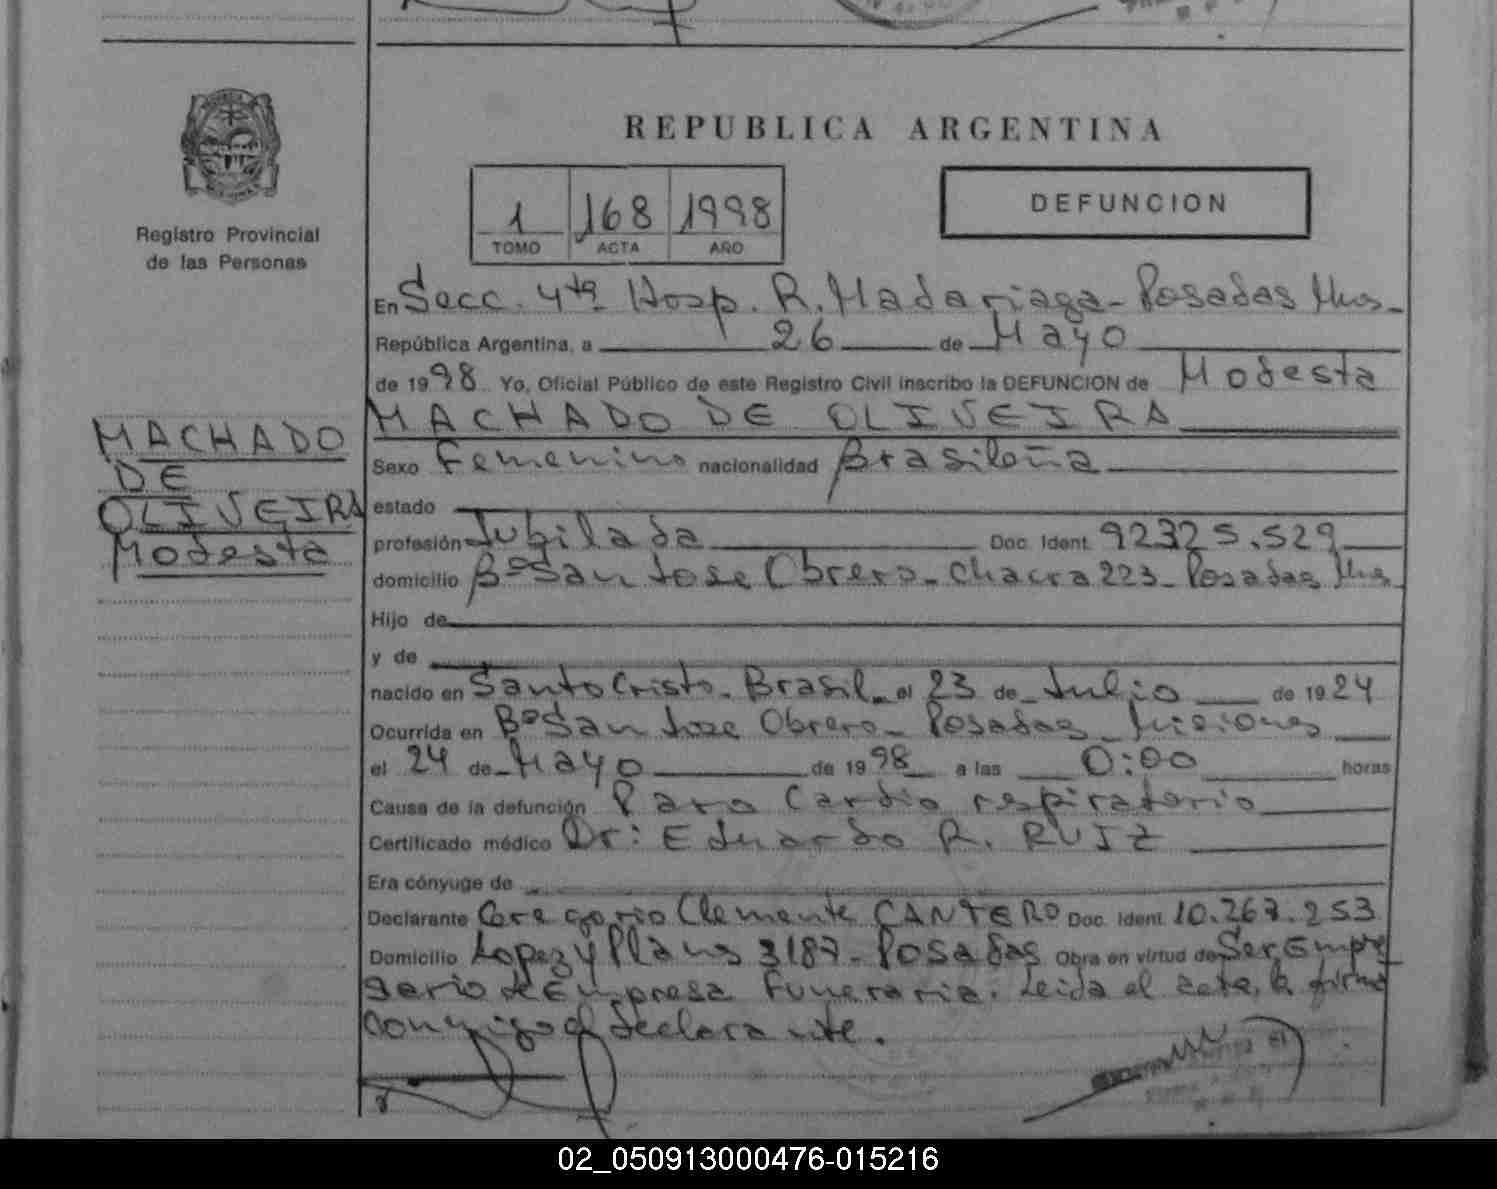 REPUBLICA ARGENTINA
Registro Provincial
de las Personas
1 168 1998
TOMO ACTA AÑO
DEFUNCION
En Secc. 4ta Hosp. R. Madariaga - Posadas Mns.
República Argentina, a 26 de Mayo
de 1998 Yo, Oficial Público de este Registro Civil inscribo la DEFUNCION de Modesta
MACHADO DE OLIVEIRA
MACHADO
DE
OLIVEIRA
Modesta
Sexo Femenino nacionalidad Brasileña
estado
profesión Jubilada Doc. Ident. 92325.529
domicilio Bº San Jose Obrero - Chacra 223 - Posadas Mns
Hijo de
y de
nacido en Santo Cristo - Brasil - el 23 de Julio de 1924
Ocurrida en Bº San Jose Obrero - Posadas - Misiones
el 24 de Mayo de 1998 a las 0:00 horas
Causa de la defunción Paro Cardio respiratorio
Certificado médico Dr: Eduardo R. RUIZ
Era cónyuge de
Declarante Gregorio Clemente CANTERO Doc. Ident. 10.267.253
Domicilio Lopez y Planes 3187 - Posadas Obra en virtud de Ser Empre
sario de Empresa Funeraria. Leida el acta, la firma
conmigo el declarante.
02_050913000476-015216